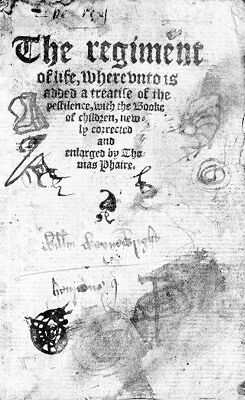 The regiment
of life, wherevnto is
added a treatise of the
pestilence, with the Booke
of children, new-
ly corrected
and
enlarged by Tho
mas Phaire.